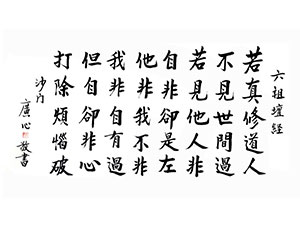 六祖壇經
若真修道人
不見世間過
若見他人非
自非卻是左
他非我不非
我非自有過
但自卻非心
打除煩惱破
沙門
廣心敬書